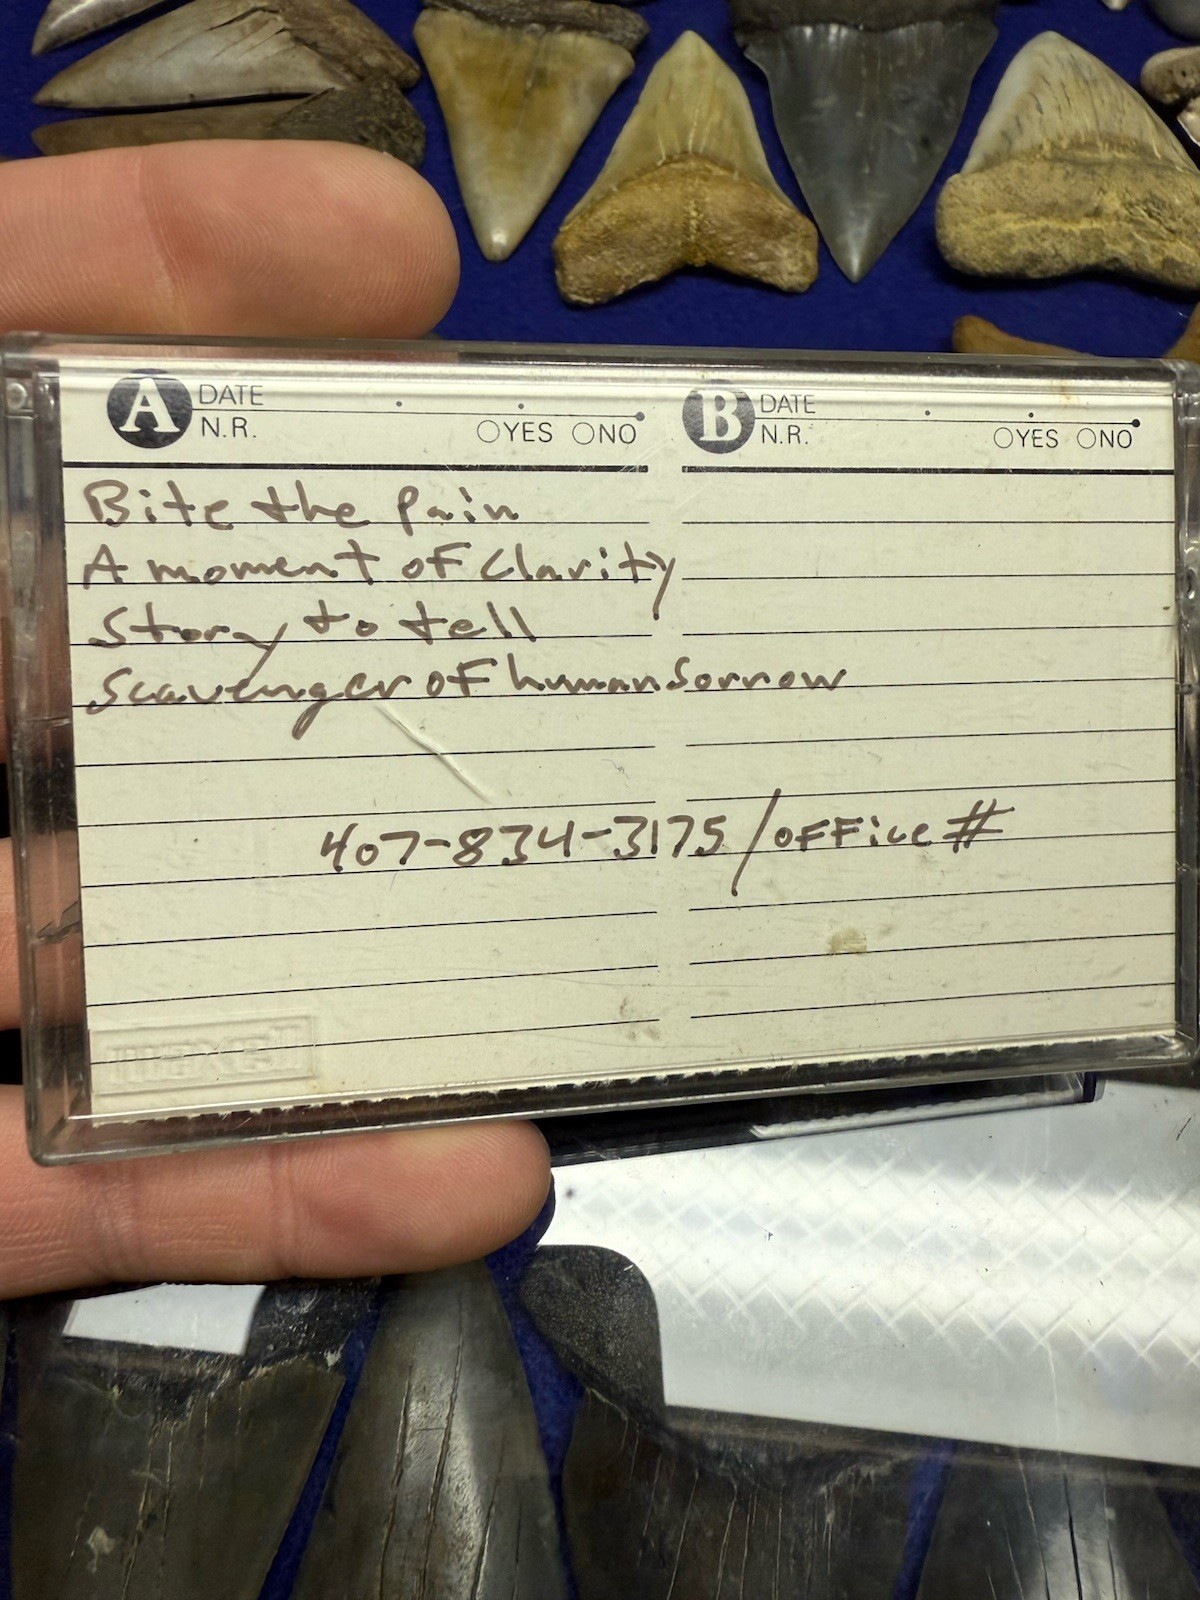 A DATE
N.R. YES NO
B DATE
N.R. YES NO
Bite the Pain
A moment of Clarity
Story to tell
Scavenger of human Sorrow
407-834-3175 / office #
maxell